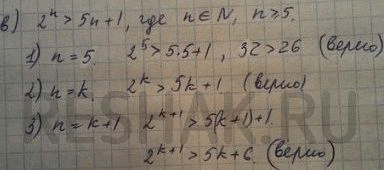 в) 2ⁿ > 5n+1, где n ∈ N, n ≥ 5.
1) n = 5. 2⁵ > 5·5+1, 32 > 26 (верно)
2) n = k. 2ᵏ > 5k+1 (верно)
3) n = k+1 2ᵏ⁺¹ > 5(k+1)+1.
2ᵏ⁺¹ > 5k+6. (верно)
RESHAK.RU